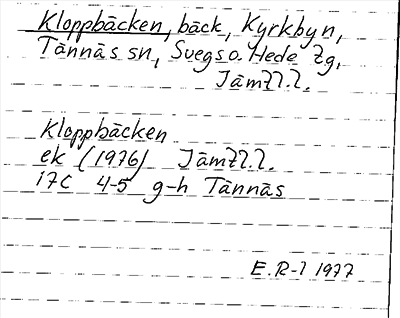 Kloppbäcken, bäck, Kyrkbyn,
Tännäs sn, Svegs o. Hede tg,
Jämtl. l.
Kloppbäcken
ek (1976) Jämtl. l.
17C 4-5 g-h Tännäs
E. R-l 1977